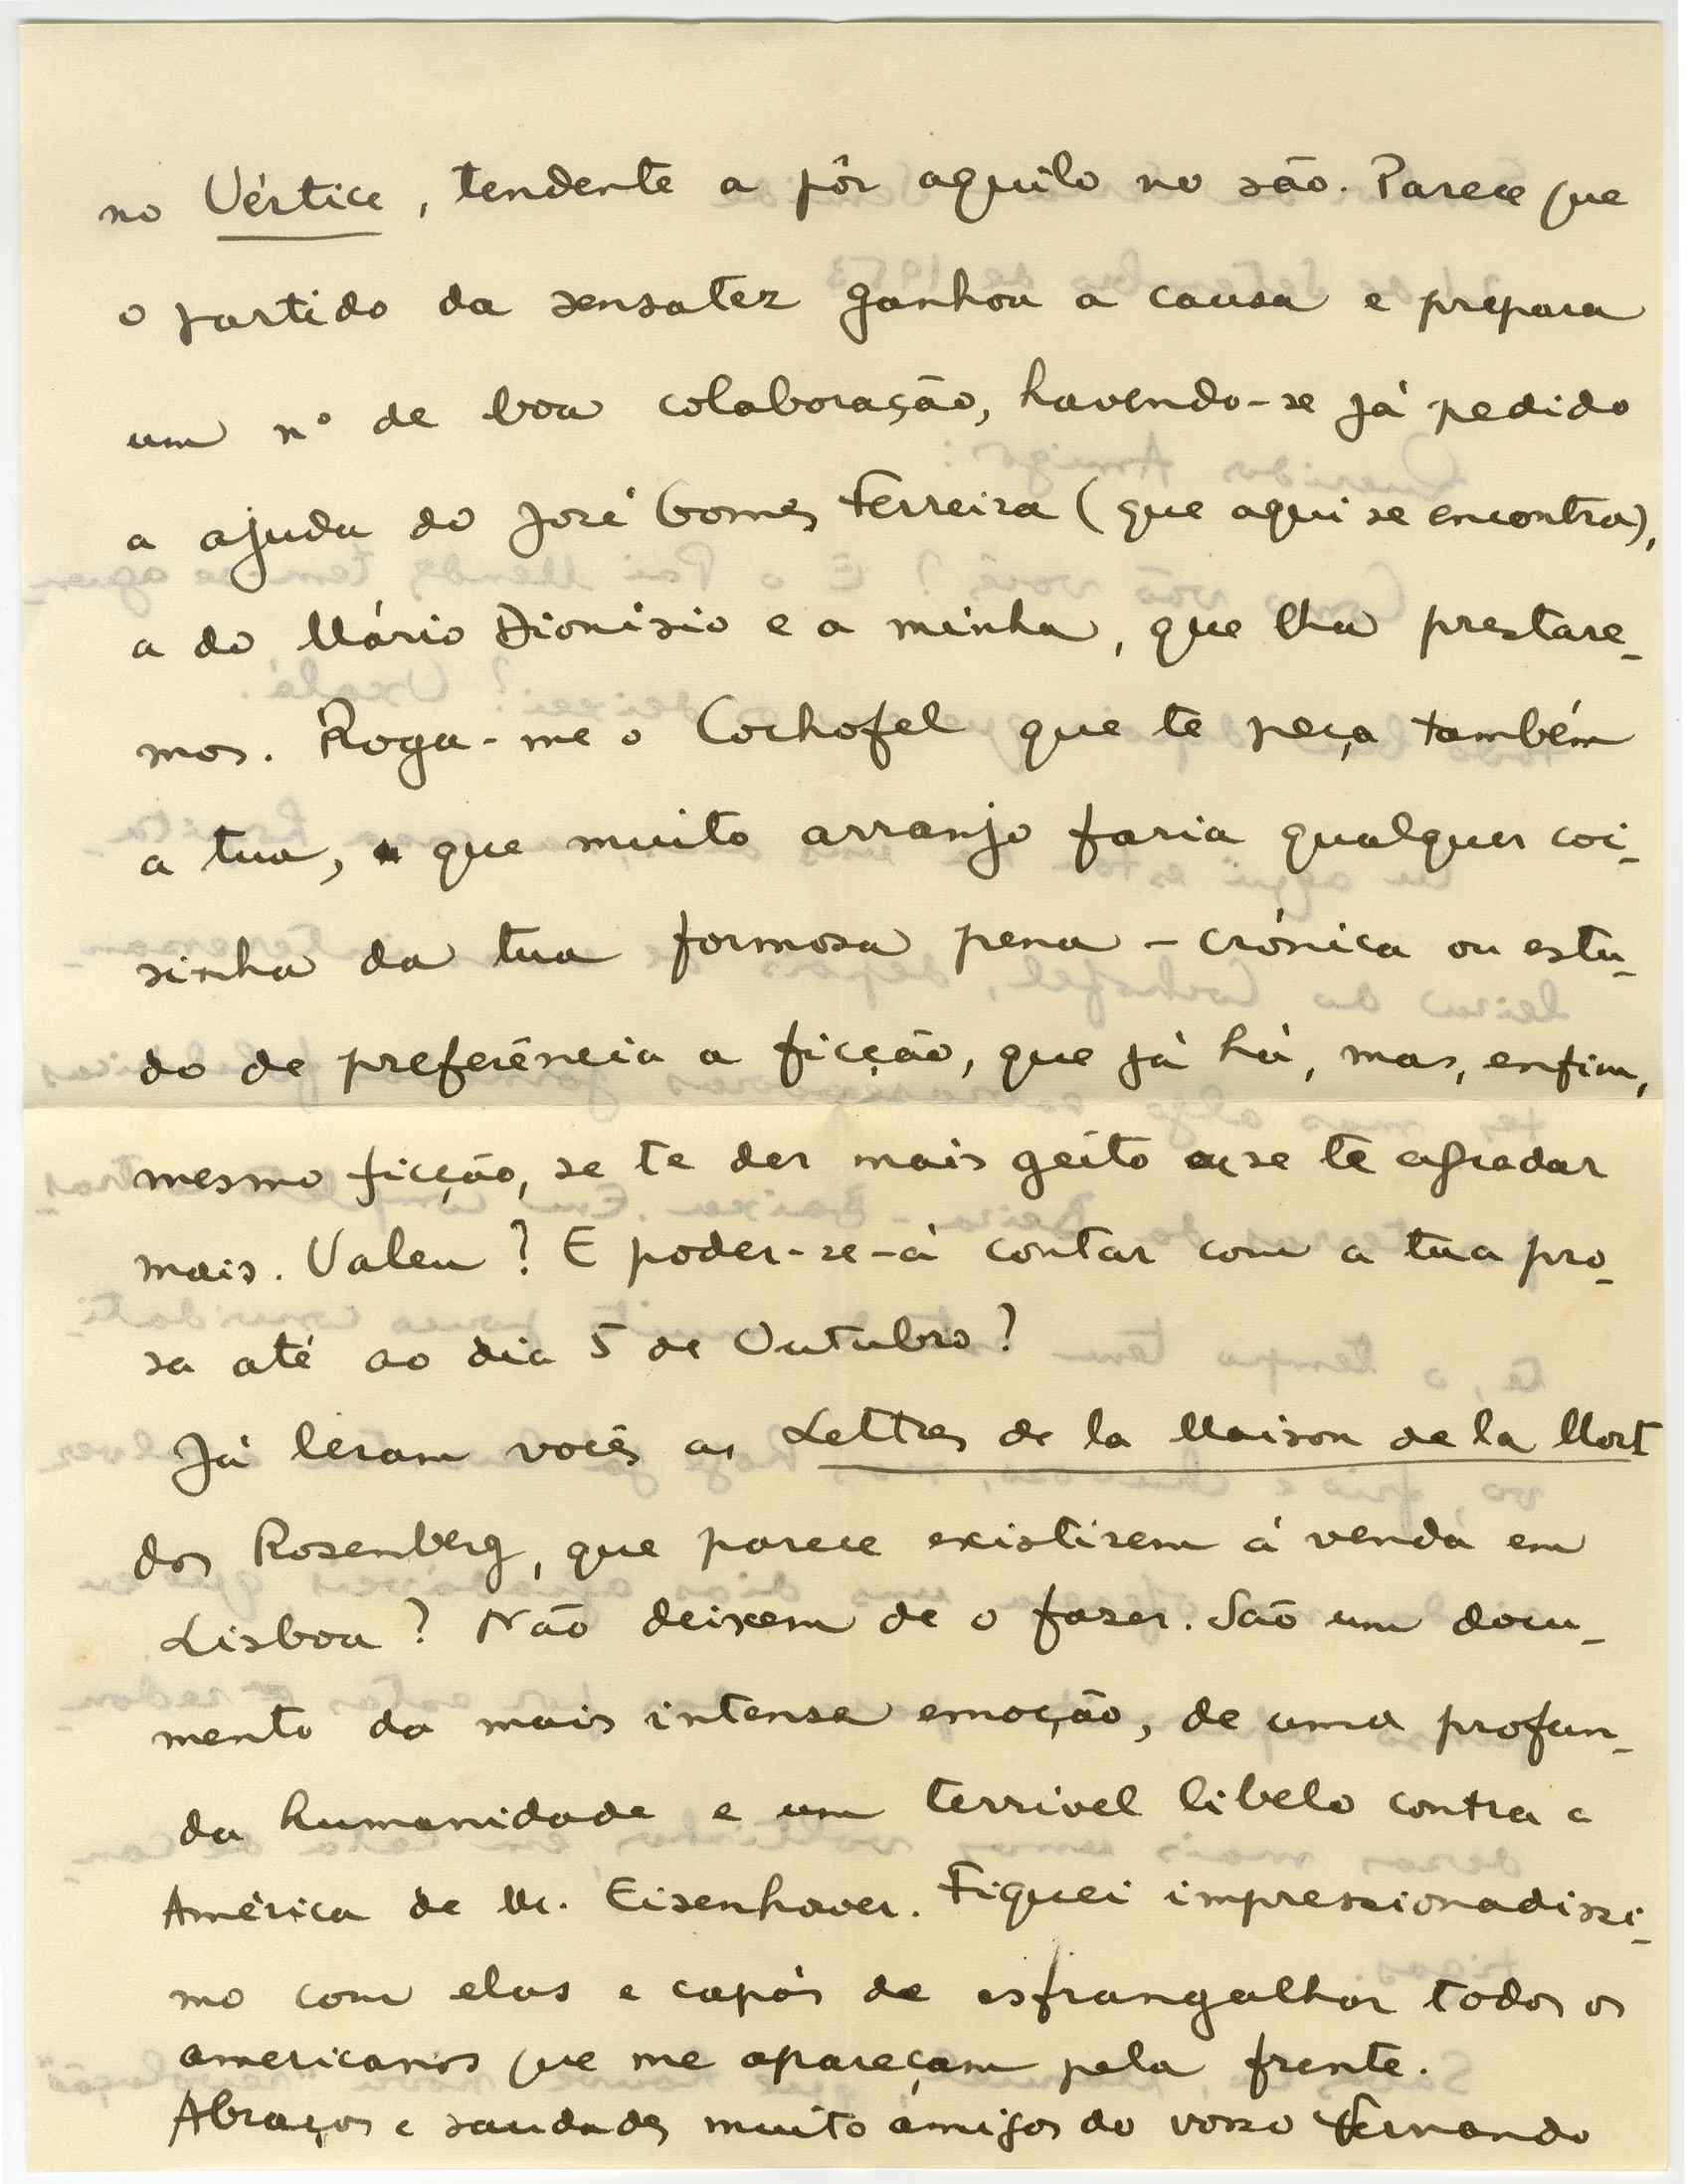 no Vértice, tendente a pôr aquilo no são. Parece que
o partido da sensatez ganhou a causa e prepara
um nº de boa colaboração, havendo-se já pedido
a ajuda do José Gomes Ferreira (que aqui se encontra),
a do Mário Dionísio e a minha, que lha prestare-
mos. Roga-me o Cochofel que te peça também
a tua, que muito arranjo faria qualquer coi-
sinha da tua formosa pena - crónica ou estu-
do de preferência a ficção, que já há, mas, enfim,
mesmo ficção, se te der mais geito ou se te agradar
mais. Valeu? E poder-se-á contar com a tua pro-
sa até ao dia 5 de Outubro?
Já leram vocês as Lettres de la Maison de la Mort
dos Rosenberg, que parece existirem à venda em
Lisboa? Não deixem de o fazer. São um docu-
mento da mais intensa emoção, de uma profun-
da humanidade e um terrivel libelo contra a
América de Mr. Eisenhower. Fiquei impressionadissi-
mo com elas e capás de esfrangalhar todos os
americanos que me apareçam pela frente.
Abraços e saudades muito amigos do vosso Fernando